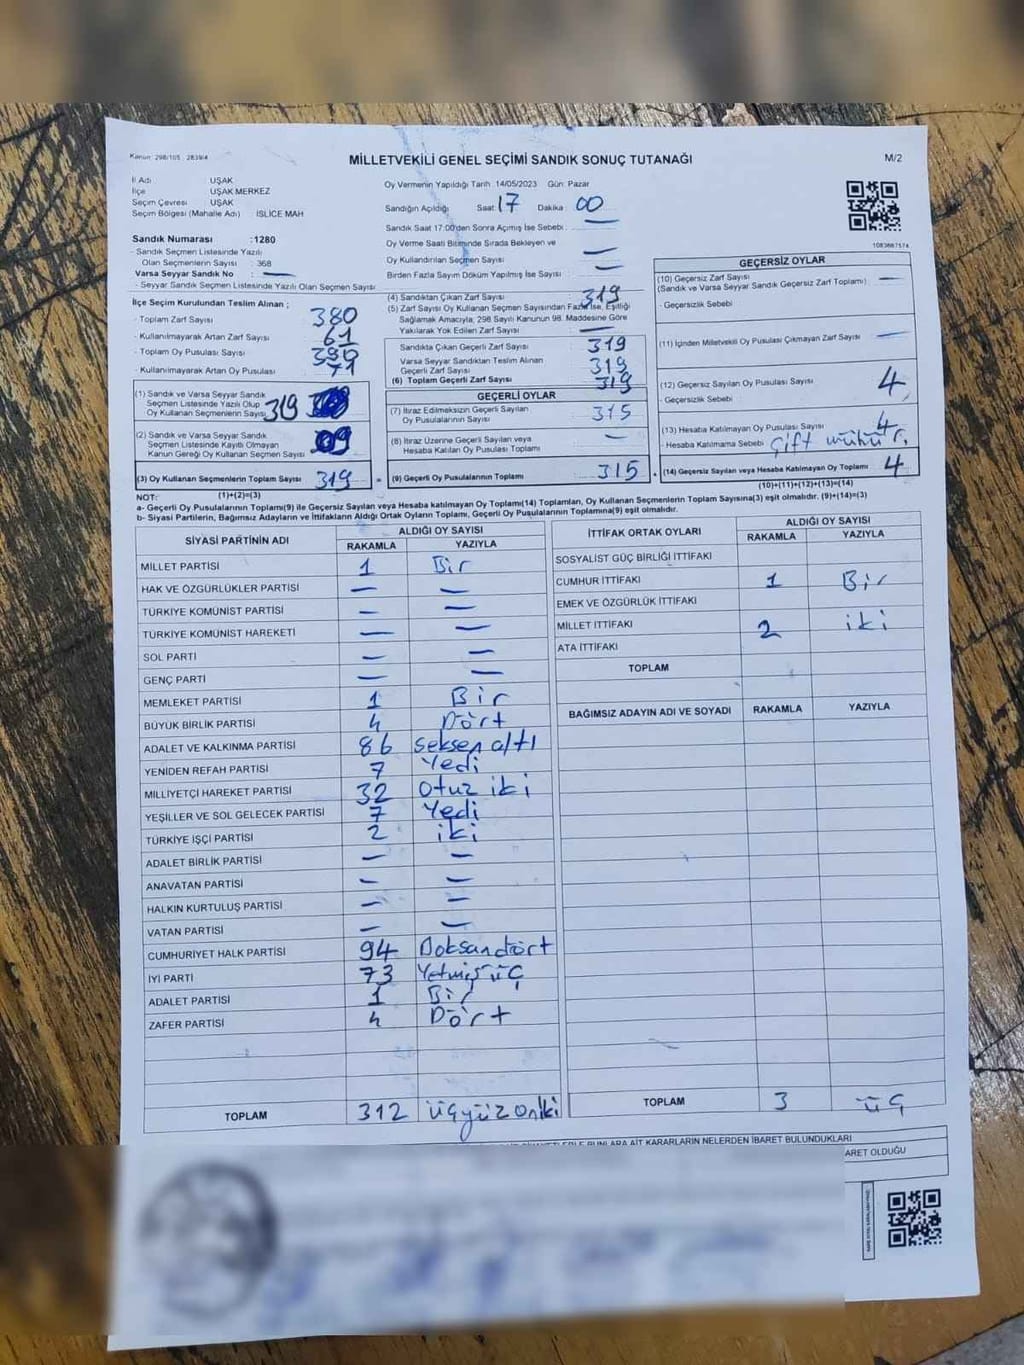 Kanun: 298/105 2839/4
MİLLETVEKİLİ GENEL SEÇİMİ SANDIK SONUÇ TUTANAĞI
M/2
İl Adı : UŞAK
İlçe : UŞAK MERKEZ
Seçim Çevresi : UŞAK
Seçim Bölgesi (Mahalle Adı) ISLİCE MAH
Oy Vermenin Yapıldığı Tarih :14/05/2023 Gün: Pazar
Sandığın Açıldığı Saat: 17 Dakika: 00
Sandık Saat 17:00'den Sonra Açımış İse Sebebi : —
Oy Verme Saati Bitiminde Sırada Bekleyen ve
Oy Kullandırılan Seçmen Sayısı : —
Birden Fazla Sayım Döküm Yapılmış İse Sayısı : —
1083687574
Sandık Numarası :1280
- Sandık Seçmen Listesinde Yazılı
Olan Seçmenlerin Sayısı : 368
Varsa Seyyar Sandık No : —
- Seyyar Sandık Listesinde Yazılı Olan Seçmen Sayısı:
İlçe Seçim Kurulundan Teslim Alınan ;
- Toplam Zarf Sayısı 380
- Kullanılmayarak Artan Zarf Sayısı 61
- Toplam Oy Pusulası Sayısı 390
- Kullanılmayarak Artan Oy Pusulası 71
(1) Sandık ve Varsa Seyyar Sandık
Seçmen Listesinde Yazılı Olup
Oy Kullanan Seçmenlerin Sayısı 319
(2) Sandık ve Varsa Seyyar Sandık
Seçmen Listesinde Kayıtlı Olmayan
Kanun Gereği Oy Kullanan Seçmen Sayısı
(3) Oy Kullanan Seçmenlerin Toplam Sayısı 319 =
(1)+(2)=(3)
(4) Sandıktan Çıkan Zarf Sayısı : 319
(5) Zarf Sayısı Oy Kullanan Seçmen Sayısından Fazla İse, Eşitliği
Sağlamak Amacıyla; 298 Sayılı Kanunun 98. Maddesine Göre
Yakılarak Yok Edilen Zarf Sayısı : —
Sandıkta Çıkan Geçerli Zarf Sayısı : 319
Varsa Seyyar Sandıktan Teslim Alınan
Geçerli Zarf Sayısı : 319
(6) Toplam Geçerli Zarf Sayısı : 319
GEÇERLİ OYLAR
(7) İtiraz Edilmeksizin Geçerli Sayılan
Oy Pusulalarının Sayısı : 315
(8) İtiraz Üzerine Geçerli Sayılan veya
Hesaba Katılan Oy Pusulası Toplamı —
(9) Geçerli Oy Pusulalarının Toplamı : 315 +
GEÇERSİZ OYLAR
(10) Geçersiz Zarf Sayısı : —
(Sandık ve Varsa Seyyar Sandık Geçersiz Zarf Toplamı)
- Geçersizlik Sebebi
(11) İçinden Milletvekili Oy Pusulası Çıkmayan Zarf Sayısı : —
(12) Geçersiz Sayılan Oy Pusulası Sayısı : 4
- Geçersizlik Sebebi
(13) Hesaba Katılmayan Oy Pusulası Sayısı : 4
- Hesaba Katılmama Sebebi : Çift mühür.
(14) Geçersiz Sayılan veya Hesaba Katılmayan Oy Toplamı : 4
(10)+(11)+(12)+(13)=(14)
NOT:
a- Geçerli Oy Pusulalarının Toplamı(9) ile Geçersiz Sayılan veya Hesaba katılmayan Oy Toplamı(14) Toplamları, Oy Kullanan Seçmenlerin Toplam Sayısına(3) eşit olmalıdır. (9)+(14)=(3)
b- Siyasi Partilerin, Bağımsız Adayların ve İttifakların Aldığı Ortak Oyların Toplamı, Geçerli Oy Pusulalarının Toplamına(9) eşit olmalıdır.
SİYASİ PARTİNİN ADI ALDIĞI OY SAYISI
RAKAMLA YAZIYLA
MİLLET PARTİSİ 1 Bir
HAK VE ÖZGÜRLÜKLER PARTİSİ — —
TÜRKİYE KOMÜNİST PARTİSİ — —
TÜRKİYE KOMÜNİST HAREKETİ — —
SOL PARTİ — —
GENÇ PARTİ — —
MEMLEKET PARTİSİ 1 Bir
BÜYÜK BİRLİK PARTİSİ 4 Dört
ADALET VE KALKINMA PARTİSİ 86 seksen altı
YENİDEN REFAH PARTİSİ 7 Yedi
MİLLİYETÇİ HAREKET PARTİSİ 32 otuz iki
YEŞİLLER VE SOL GELECEK PARTİSİ 7 Yedi
TÜRKİYE İŞÇİ PARTİSİ 2 iki
ADALET BİRLİK PARTİSİ — —
ANAVATAN PARTİSİ — —
HALKIN KURTULUŞ PARTİSİ — —
VATAN PARTİSİ — —
CUMHURİYET HALK PARTİSİ 94 Doksandört
İYİ PARTİ 73 Yetmiş üç
ADALET PARTİSİ 1 Bir
ZAFER PARTİSİ 4 Dört
TOPLAM 312 üçyüz oniki
İTTİFAK ORTAK OYLARI ALDIĞI OY SAYISI
RAKAMLA YAZIYLA
SOSYALİST GÜÇ BİRLİĞİ İTTİFAKI
CUMHUR İTTİFAKI 1 Bir
EMEK VE ÖZGÜRLÜK İTTİFAKI
MİLLET İTTİFAKI 2 iki
ATA İTTİFAKI
TOPLAM
BAĞIMSIZ ADAYIN ADI VE SOYADI RAKAMLA YAZIYLA
TOPLAM 3 üç
BUNLARA AİT KARARLARIN NELERDEN İBARET BULUNDUKLARI
OLDUĞU